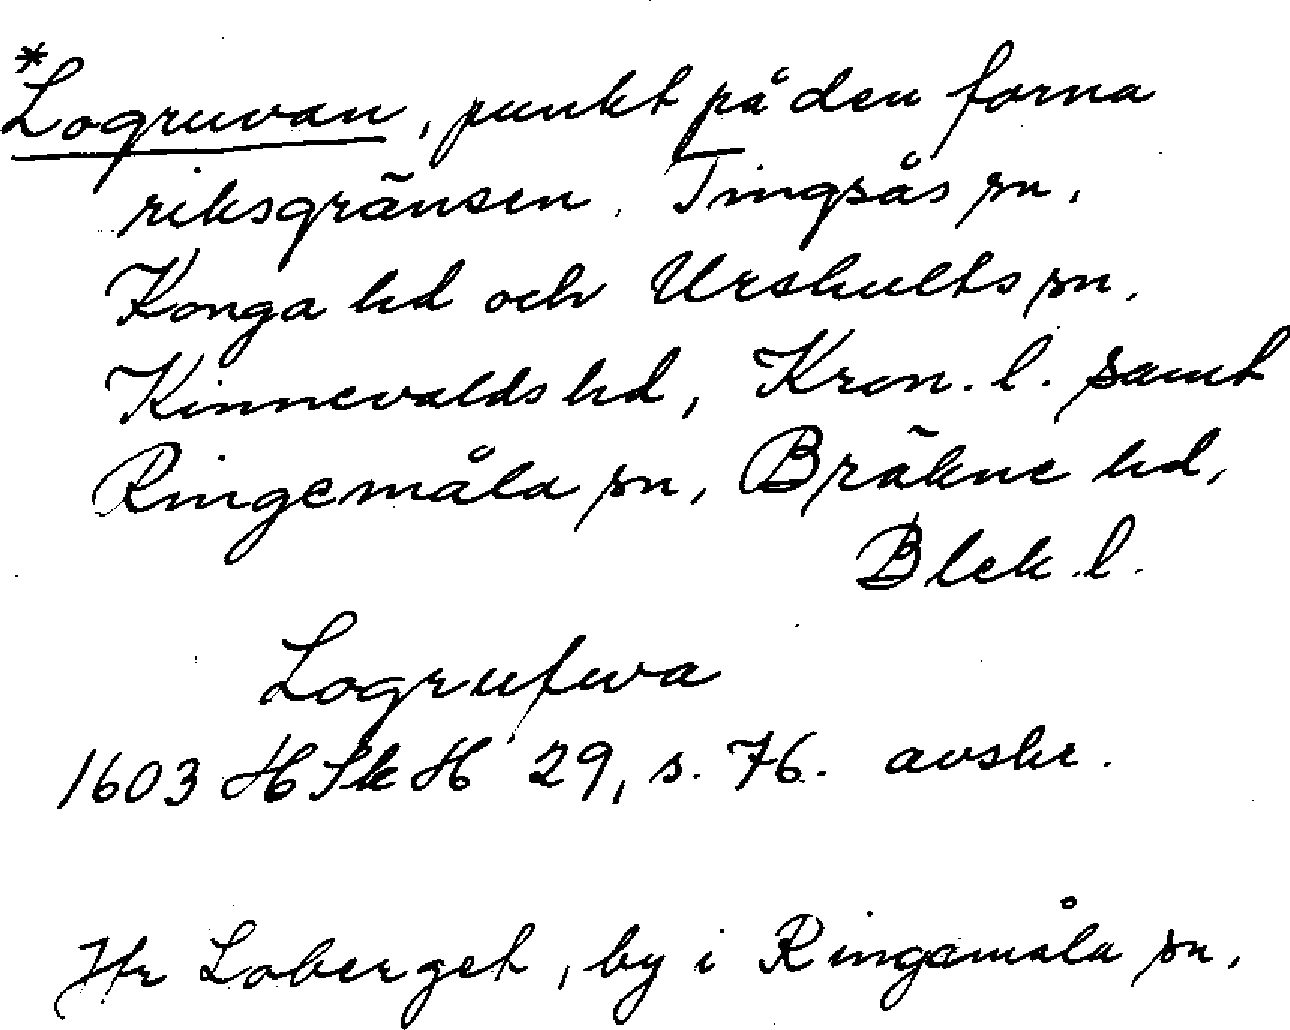 *Logruvan, punkt på den forna
riksgränsen. Tingsås sn,
Konga hd och Urshults sn,
Kinnevalds hd, Kron. l. samt
Ringemåla sn, Bräkne hd,
Blek. l.
Logrufwa
1603 HSkH 29, s. 76. avskr.
Jfr Loberget, by i Ringamåla sn,